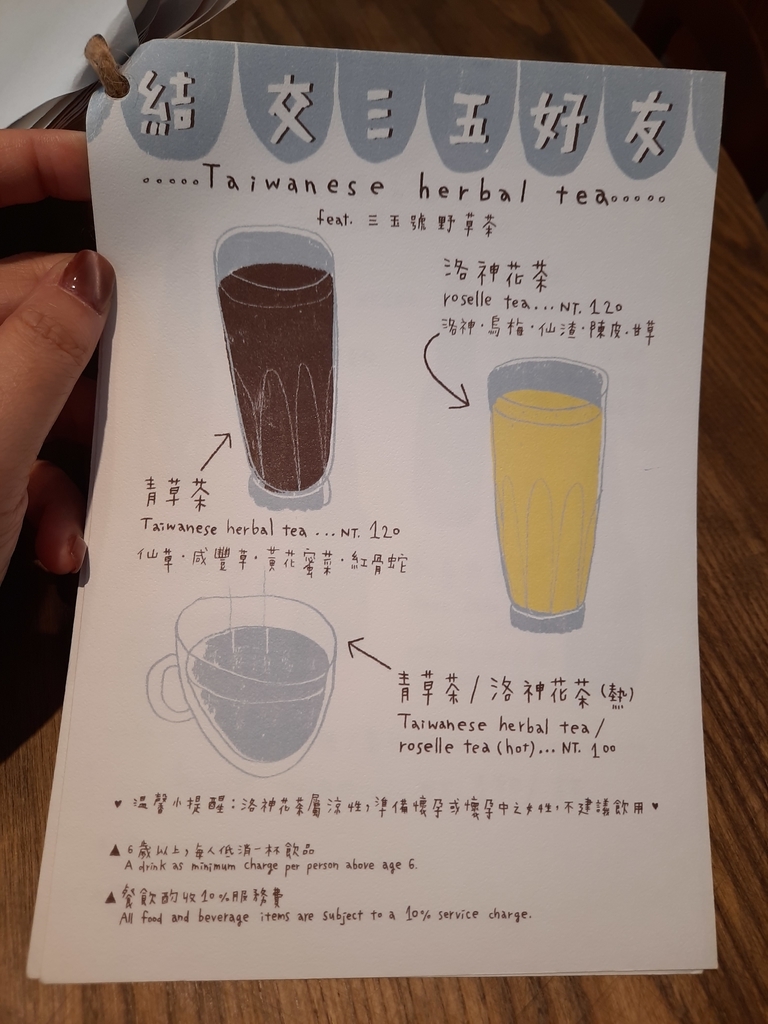 結交三五好友
.....Taiwanese herbal tea.....
feat. 三五號野草茶
洛神花茶
roselle tea...NT. 120
洛神·烏梅·仙渣·陳皮·甘草
青草茶
Taiwanese herbal tea ...NT. 120
仙草·咸豐草·黃花蜜菜·紅骨蛇
青草茶/洛神花茶(熱)
Taiwanese herbal tea/
roselle tea (hot)...NT. 100
♥ 溫馨小提醒:洛神花茶屬涼性,準備懷孕或懷孕中之女性,不建議飲用 ♥
▲ 6歲以上,每人低消一杯飲品
A drink as minimum charge per person above age 6.
▲ 餐飲酌收10%服務費
All food and beverage items are subject to a 10% service charge.